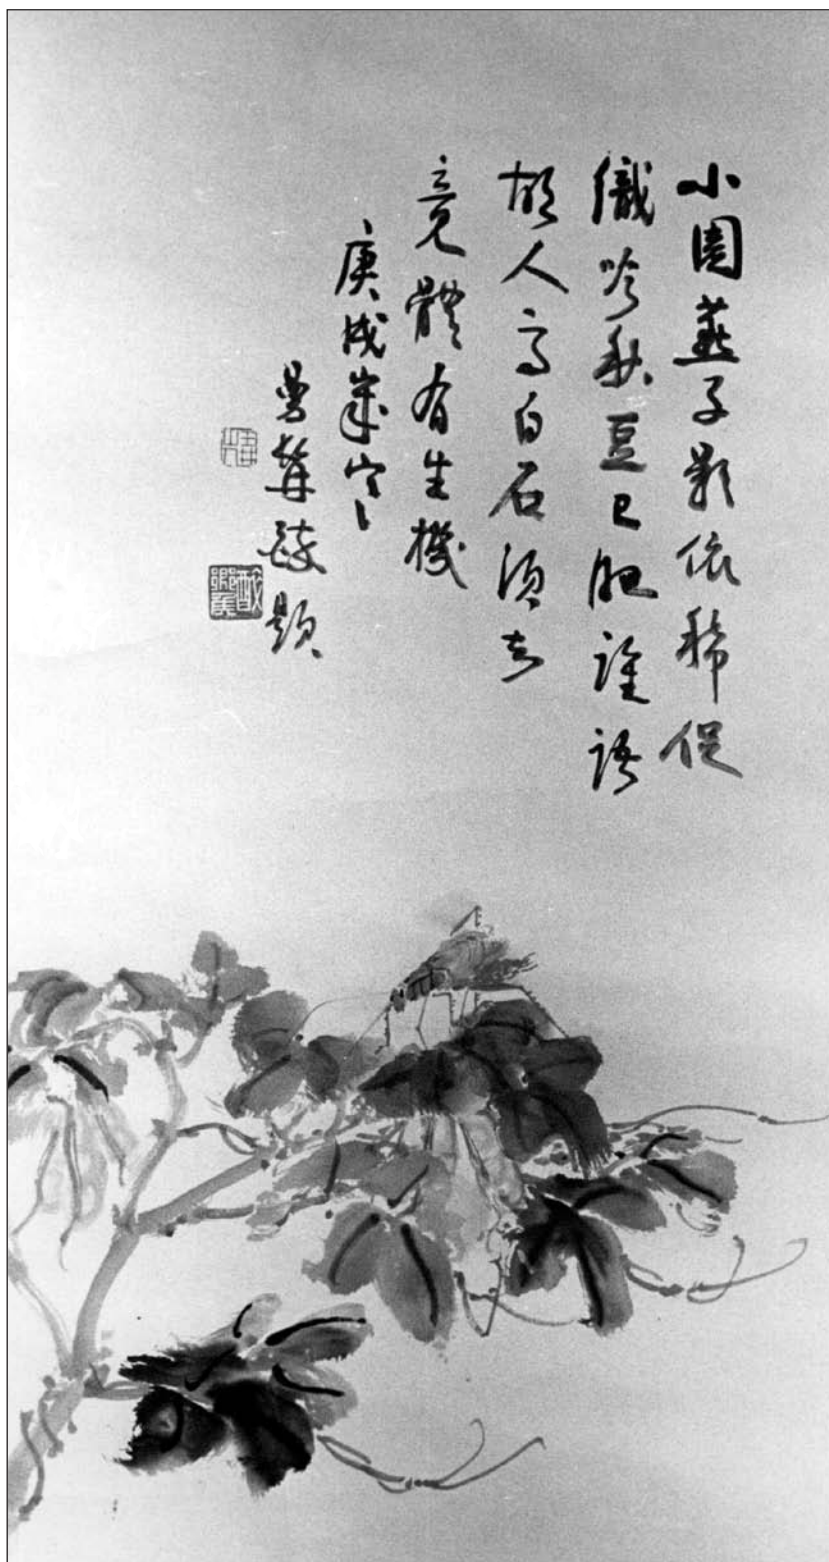 小園燕子影依稀促
織吟秋豆已肥誰語
故人高白石須知
竟體有生機
庚戌歲寒
曼髯敬題